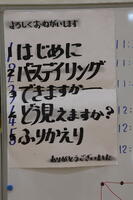 よろしくおねがいします
1 はじめに
2 パスデイリング
3 できますかー
4 どう見えますか?
5 ふりかえり
ありがとうございました
11:
11:
11:
12: